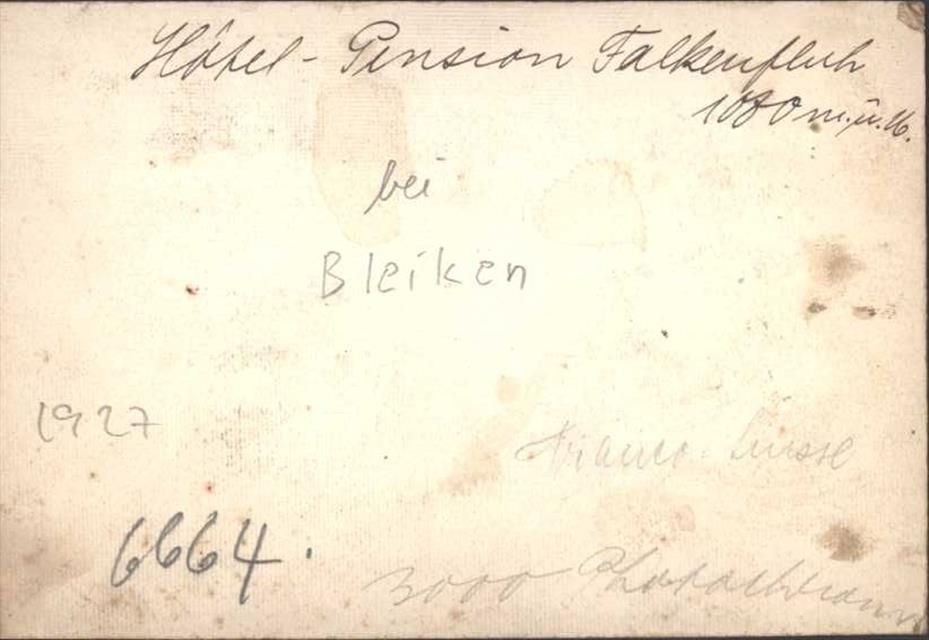 Hôtel - Pension Falkenfluh
1080 m.ü.M.
bei
Bleiken
1927
Franco-Suisse
6664.
3000